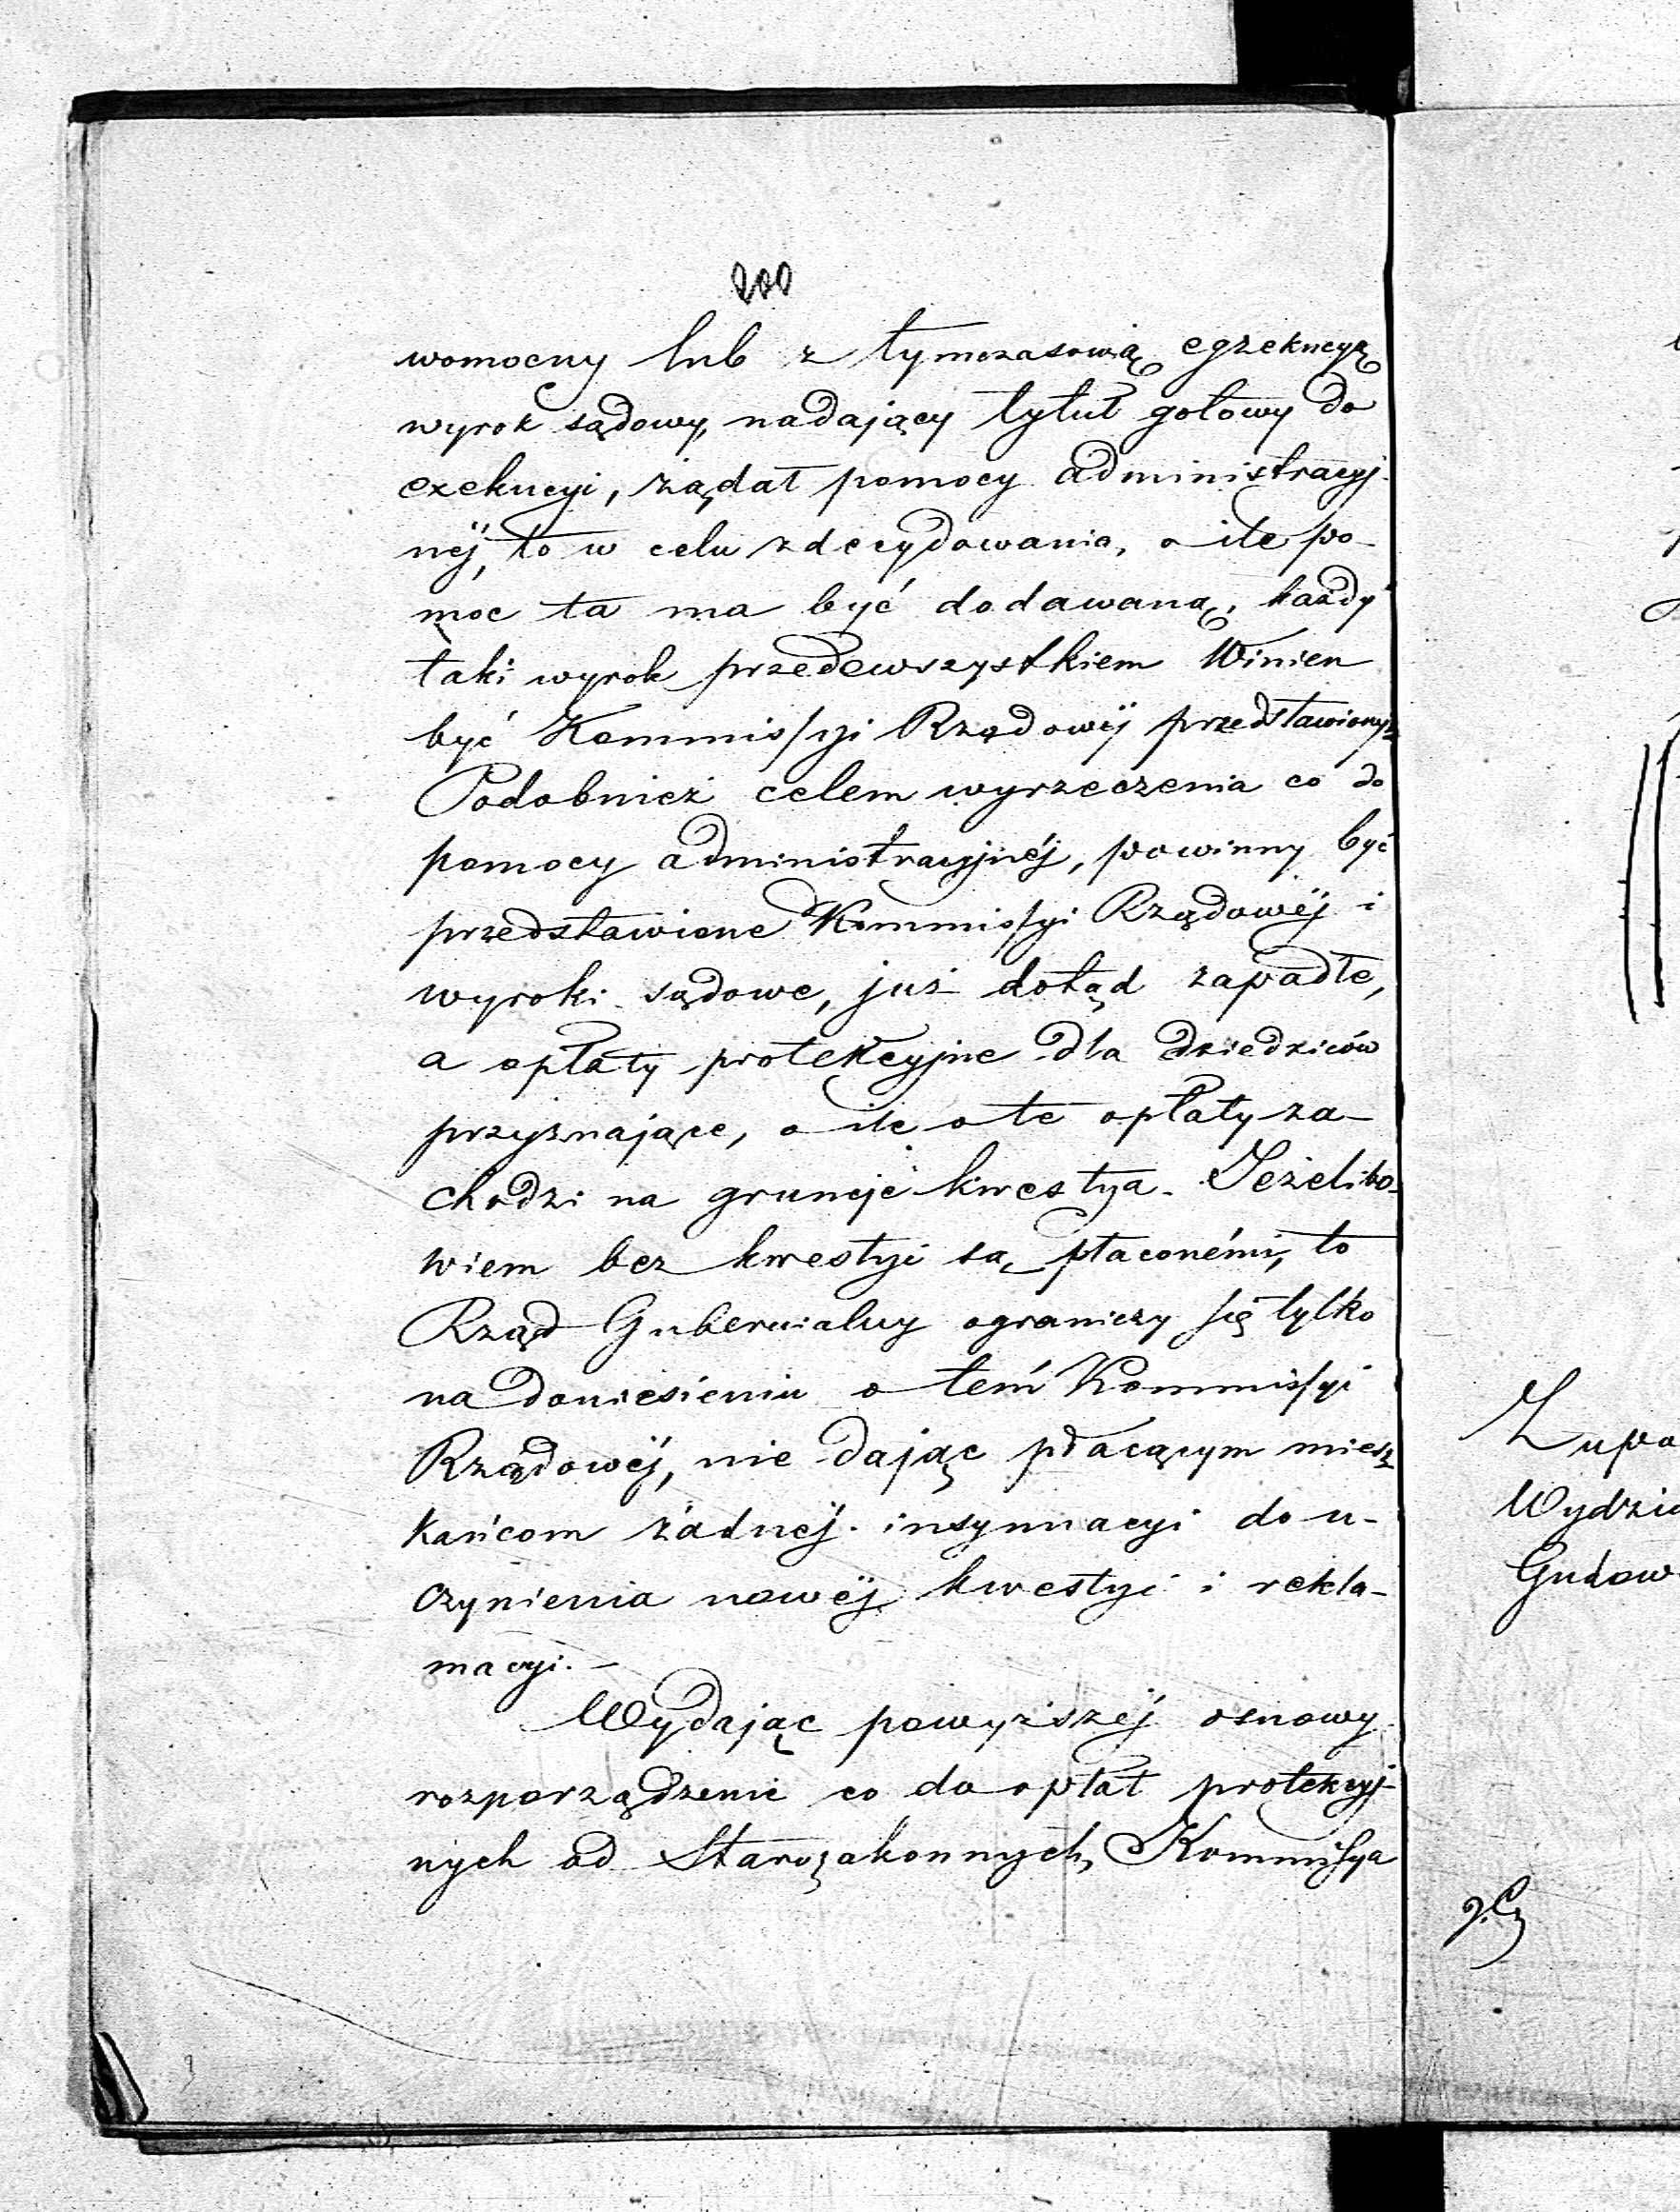 200
womocny lub z tymczasową egzekucyą
wyrok sądowy, nadający tytuł gotowy do
exekucyi, żądał pomocy administracyj-
néj, to w celu zdecydowania, o ile po-
moc ta ma być dodawaną, każdy
taki wyrok przedewszystkiem Winien
być Kommissyi Rządowéj przedstawiony.
Podobnież celem wyrzeczenia co do
pomocy administracyjnéj, powinny być
przedstawione Kommissyi Rządowéj i
wyroki sądowe, już dotąd zapadłe,
a opłaty protekcyjne dla dziedziców
przyznające, o ile o te opłaty za-
chodzi na gruncie kwestya. Jeżeli bo-
wiem bez kwestyi są płaconémi, to
Rząd Gubernialny ograniczy się tylko
na doniesieniu o tém Kommissyi
Rządowéj, nie dając płacącym miesz
kańcom żadnéj insynuacyi do u-
czynienia nowéj kwestyi i rekla-
macyi. –
Wydając powyższéj osnowy
rozporządzenie co do opłat protekcyj-
nych od Starozakonnych, Kommissya
Zupo
Wydzia
Gudow